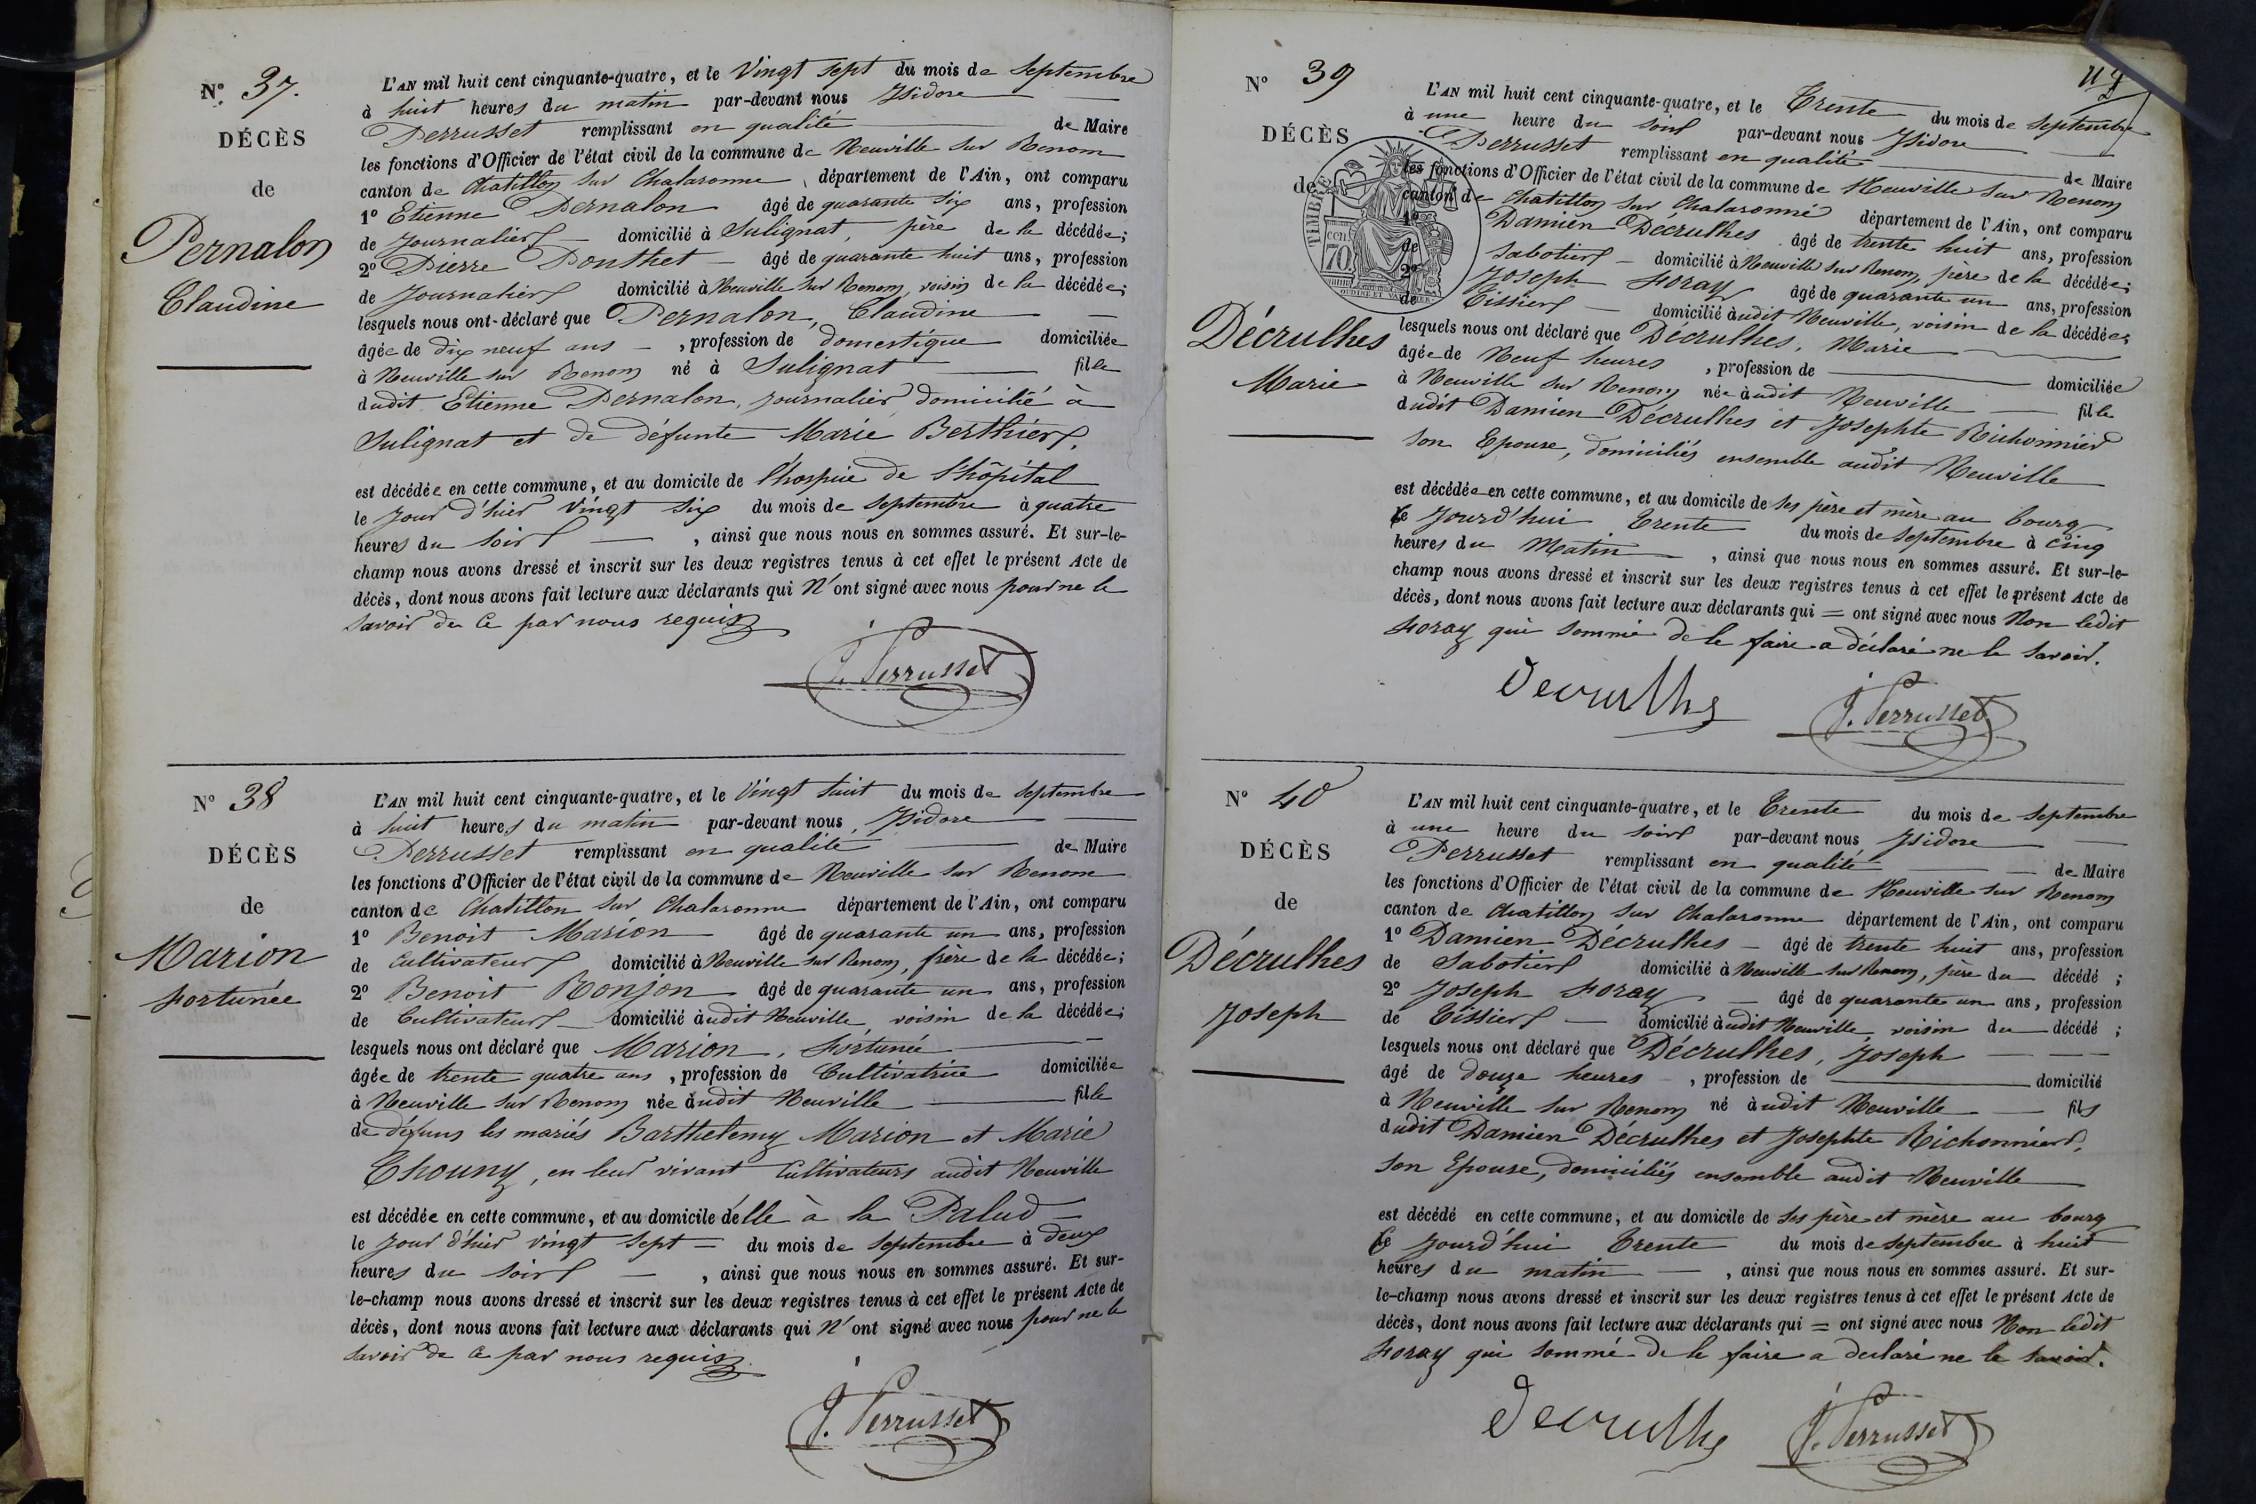 Nº 37.
DÉCÈS
de
Pernalon
Claudine
L'AN mil huit cent cinquante-quatre, et le Vingt sept du mois de Septembre
à huit heures du matin par-devant nous Isidore
Perrusset remplissant en qualité de Maire
les fonctions d'Officier de l'état civil de la commune de Neuville sur Renom
canton de Chatillon sur Chalaronne, département de l'Ain, ont comparu
1º Etienne Pernalon âgé de quarante six ans, profession
de Journalier domicilié à Sulignat, père de la décédée;
2º Pierre Ponthet âgé de quarante huit ans, profession
de Journalier domicilié à Neuville sur Renom, voisin de la décédée;
lesquels nous ont déclaré que Pernalon, Claudine
âgée de dix neuf ans, profession de domestique domiciliée
à Neuville sur Renom né à Sulignat fille
dudit Etienne Pernalon, journalier domicilié à
Sulignat et de défunte Marie Berthier.
est décédée en cette commune, et au domicile de l'hospice de l'hôpital
le jour d'hier Vingt six du mois de Septembre à quatre
heures du soir, ainsi que nous nous en sommes assuré. Et sur-le-
champ nous avons dressé et inscrit sur les deux registres tenus à cet effet le présent Acte de
décès, dont nous avons fait lecture aux déclarants qui N'ont signé avec nous pour ne le
savoir de ce par nous requis
J. Perrusset
Nº 38
DÉCÈS
de
Marion
Fortunée
L'AN mil huit cent cinquante-quatre, et le Vingt huit du mois de Septembre
à huit heures du matin par-devant nous, Isidore
Perrusset remplissant en qualité de Maire
les fonctions d'Officier de l'état civil de la commune de Neuville sur Renom
canton de Chatillon sur Chalaronne département de l'Ain, ont comparu
1º Benoit Marion âgé de quarante un ans, profession
de Cultivateur domicilié à Neuville sur Renom, frère de la décédée;
2º Benoit Ronjon âgé de quarante un ans, profession
de Cultivateur domicilié audit Neuville, voisin de la décédée;
lesquels nous ont déclaré que Marion, Fortunée
âgée de trente quatre ans, profession de Cultivatrice domiciliée
à Neuville sur Renom née audit Neuville fille
de défuns les mariés Barthelemy Marion et Marie
Chouny, en leur vivant Cultivateurs audit Neuville
est décédée en cette commune, et au domicile d'elle à la Palud
le jour d'hier vingt sept du mois de Septembre à deux
heures du soir, ainsi que nous nous en sommes assuré. Et sur-
le-champ nous avons dressé et inscrit sur les deux registres tenus à cet effet le présent Acte de
décès, dont nous avons fait lecture aux déclarants qui N'ont signé avec nous pour ne le
savoir de ce par nous requis
J. Perrusset
Nº 39
DÉCÈS
de
TIMBRE
70
Décrulhes
Marie
L'AN mil huit cent cinquante-quatre, et le Trente du mois de Septembre
à une heure du soir par-devant nous Isidore
Perrusset remplissant en qualité de Maire
les fonctions d'Officier de l'état civil de la commune de Neuville sur Renom
canton de Chatillon sur Chalaronne département de l'Ain, ont comparu
1º Damien Décrulhes âgé de trente huit ans, profession
de Sabotier domicilié à Neuville sur Renom, père de la décédée;
2º Joseph Foray âgé de quarante un ans, profession
de Tissier domicilié audit Neuville, voisin de la décédée;
lesquels nous ont déclaré que Décrulhes, Marie
âgée de Neuf heures, profession de domiciliée
à Neuville sur Renom née audit Neuville fille
dudit Damien Décrulhes et Josephte Richonnier
son Epouse, domiciliés ensemble audit Neuville
est décédée en cette commune, et au domicile de ses père et mère au bourg
ce jourd'hui Trente du mois de Septembre à cinq
heures du Matin, ainsi que nous nous en sommes assuré. Et sur-le-
champ nous avons dressé et inscrit sur les deux registres tenus à cet effet le présent Acte de
décès, dont nous avons fait lecture aux déclarants qui = ont signé avec nous Non ledit
Foray qui sommé de le faire a déclaré ne le savoir.
Decrulhe J. Perrusset
Nº 40
DÉCÈS
de
Décrulhes
Joseph
L'AN mil huit cent cinquante-quatre, et le Trente du mois de Septembre
à une heure du soir par-devant nous, Isidore
Perrusset remplissant en qualité de Maire
les fonctions d'Officier de l'état civil de la commune de Neuville sur Renom
canton de Chatillon sur Chalaronne département de l'Ain, ont comparu
1º Damien Décrulhes âgé de trente huit ans, profession
de Sabotier domicilié à Neuville sur Renom, père du décédé;
2º Joseph Foray âgé de quarante un ans, profession
de Tissier domicilié audit Neuville, voisin du décédé;
lesquels nous ont déclaré que Décrulhes, Joseph
âgé de douze heures, profession de domicilié
à Neuville sur Renom né audit Neuville fils
dudit Damien Décrulhes et Josephte Richonnier,
son Epouse, domiciliés ensemble audit Neuville
est décédé en cette commune, et au domicile de ses père et mère au bourg
ce jourd'hui Trente du mois de Septembre à huit
heures du matin, ainsi que nous nous en sommes assuré. Et sur-
le-champ nous avons dressé et inscrit sur les deux registres tenus à cet effet le présent Acte de
décès, dont nous avons fait lecture aux déclarants qui = ont signé avec nous Non ledit
Foray qui sommé de le faire a déclaré ne le savoir.
Decrulhe J. Perrusset